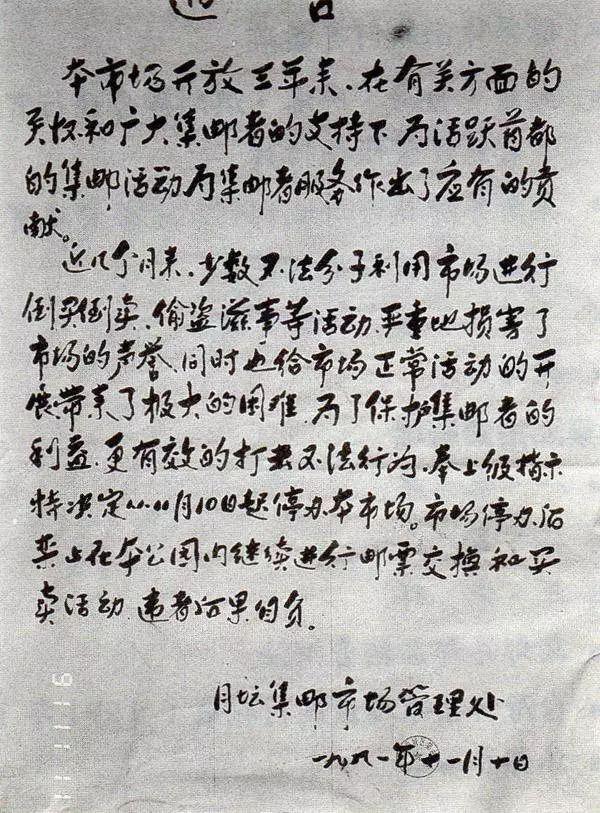 通告
本市场开放三年来、在有关方面的
关怀和广大集邮者的支持下，为活跃首都
的集邮活动为集邮者服务作出了应有的贡
献。
近几个月来、少数不法分子利用市场进行
倒买倒卖、偷盗滋事等活动，严重地损害了
市场的声誉，同时也给市场正常活动的开
展带来了极大的困难，为了保护集邮者的
利益，更有效的打击不法行为，奉上级指示
特决定从11月10日起停办本市场。市场停办后
禁止在本公园内继续进行邮票交换和买
卖活动，违者后果自负。
月坛集邮市场管理处
一九九一年十一月十日
91 11 11